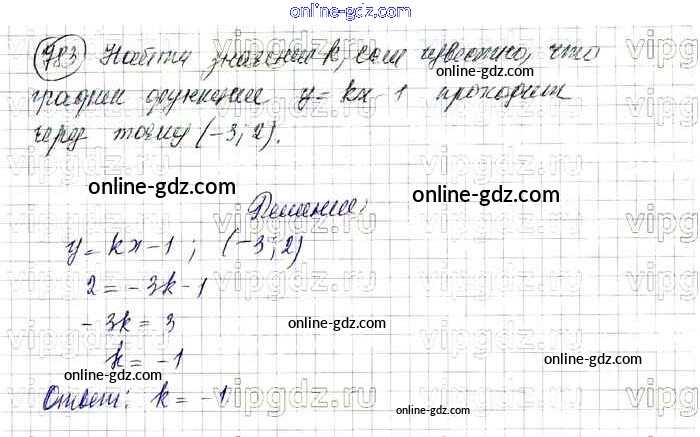 online-gdz.com
783 Найти значения k, если известно, что
график функции y = kx - 1 проходит
через точку (-3; 2).
online-gdz.com
online-gdz.com
online-gdz.com
Решение:
y = kx - 1 ; (-3; 2)
2 = -3k - 1
-3k = 3
online-gdz.com
k = -1
online-gdz.com
Ответ: k = -1
online-gdz.com
online-gdz.com
vipgdz.ru